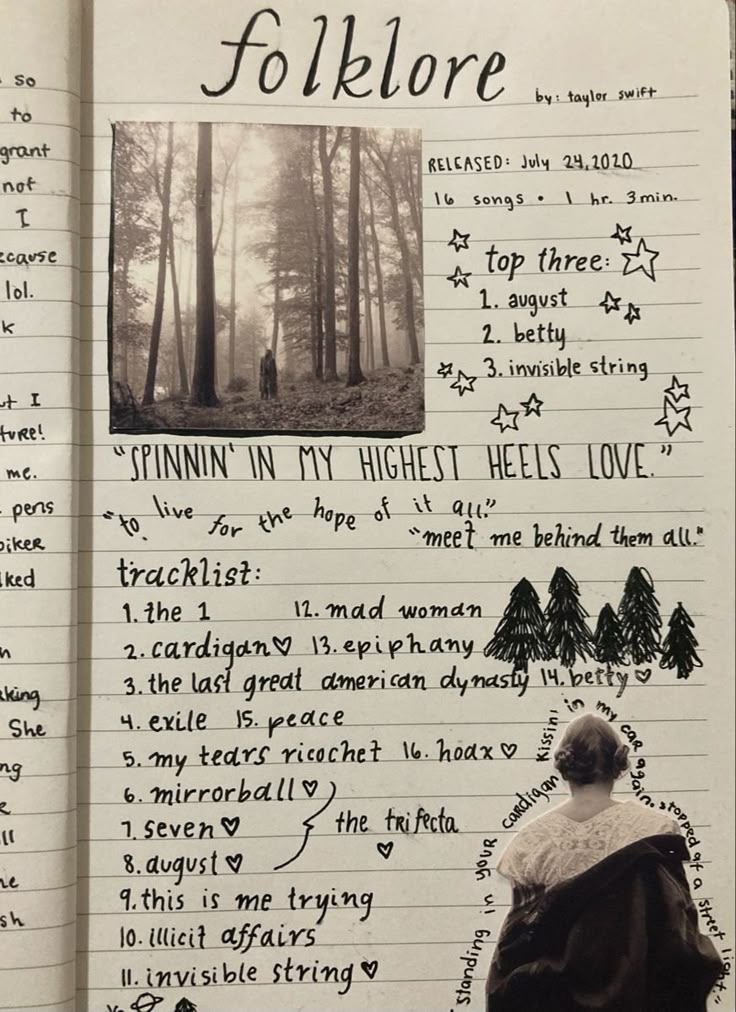 so
to
grant
not
I
lol.
k
I
me.
pens
lked
She
folklore
by: taylor swift
RELEASED: July 24, 2020
16 songs • 1 hr. 3 min.
top three:
1. august
2. betty
3. invisible string
"SPINNIN' IN MY HIGHEST HEELS LOVE."
"to live for the hope of it all."
"meet me behind them all."
tracklist:
1. the 1 12. mad woman
2. cardigan♡ 13. epiphany
3. the last great american dynasty 14. betty♡
4. exile 15. peace
5. my tears ricochet 16. hoax♡
6. mirrorball♡
7. seven♡ the trifecta
♡
8. august♡
9. this is me trying
10. illicit affairs
11. invisible string♡
"standing in your cardigan kissin' in my car again. stopped at a street light."